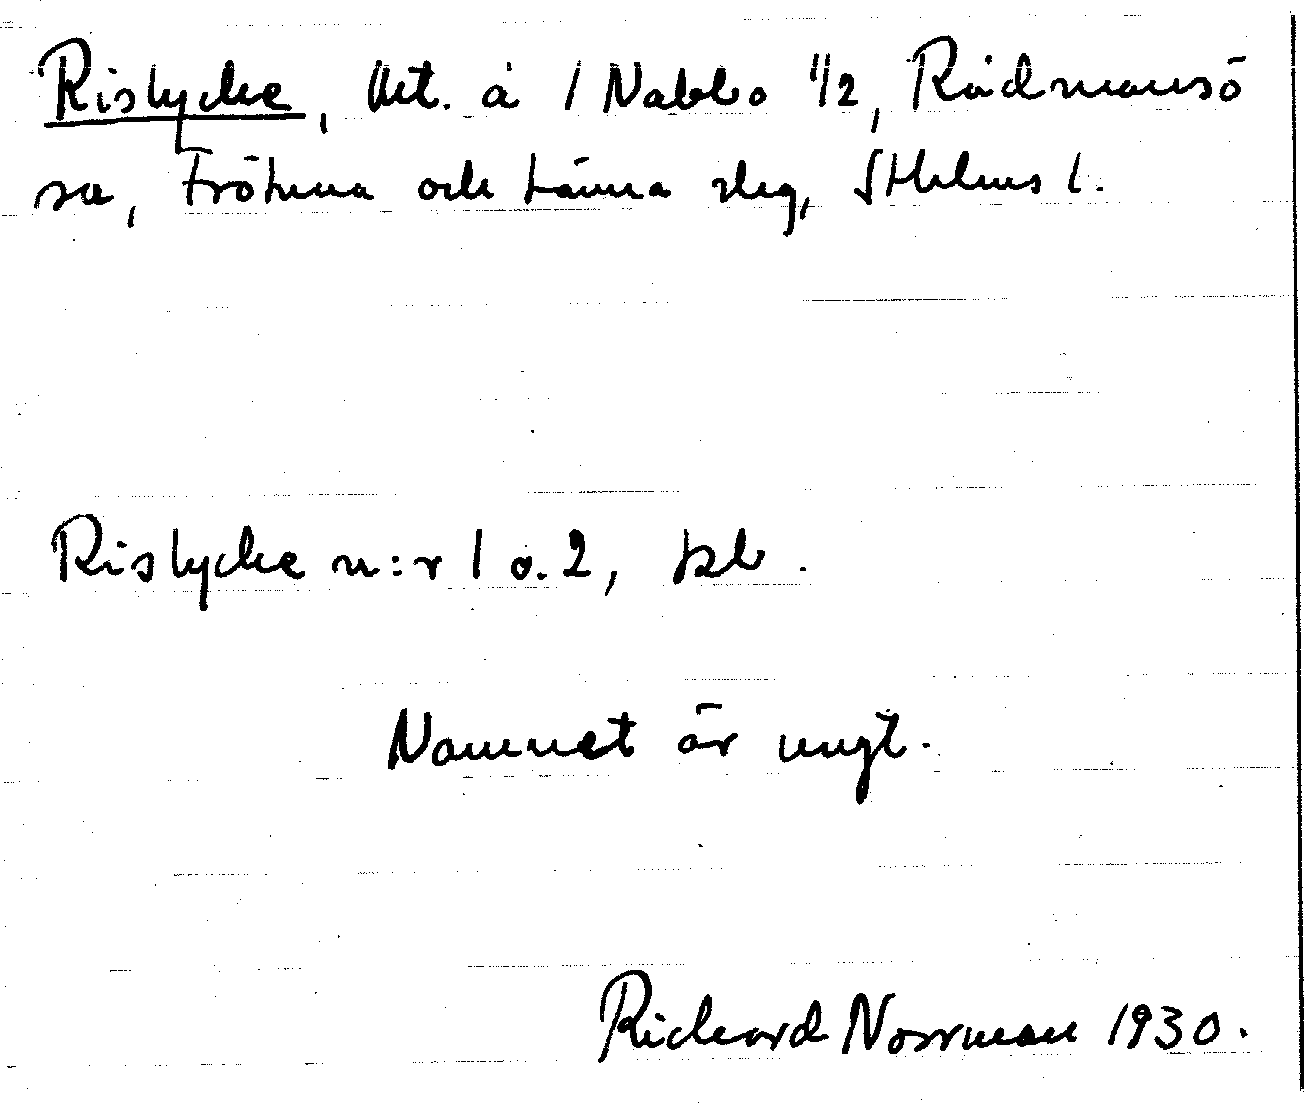 Rislycke, Utt. å 1 Nabbo 1/2, Rådmansö
sn, Frötuna och Länna slg, Sthlms l.
Rislycke n:r 1 o. 2, jb.
Namnet är ungt.
Richard Norrman 1930.